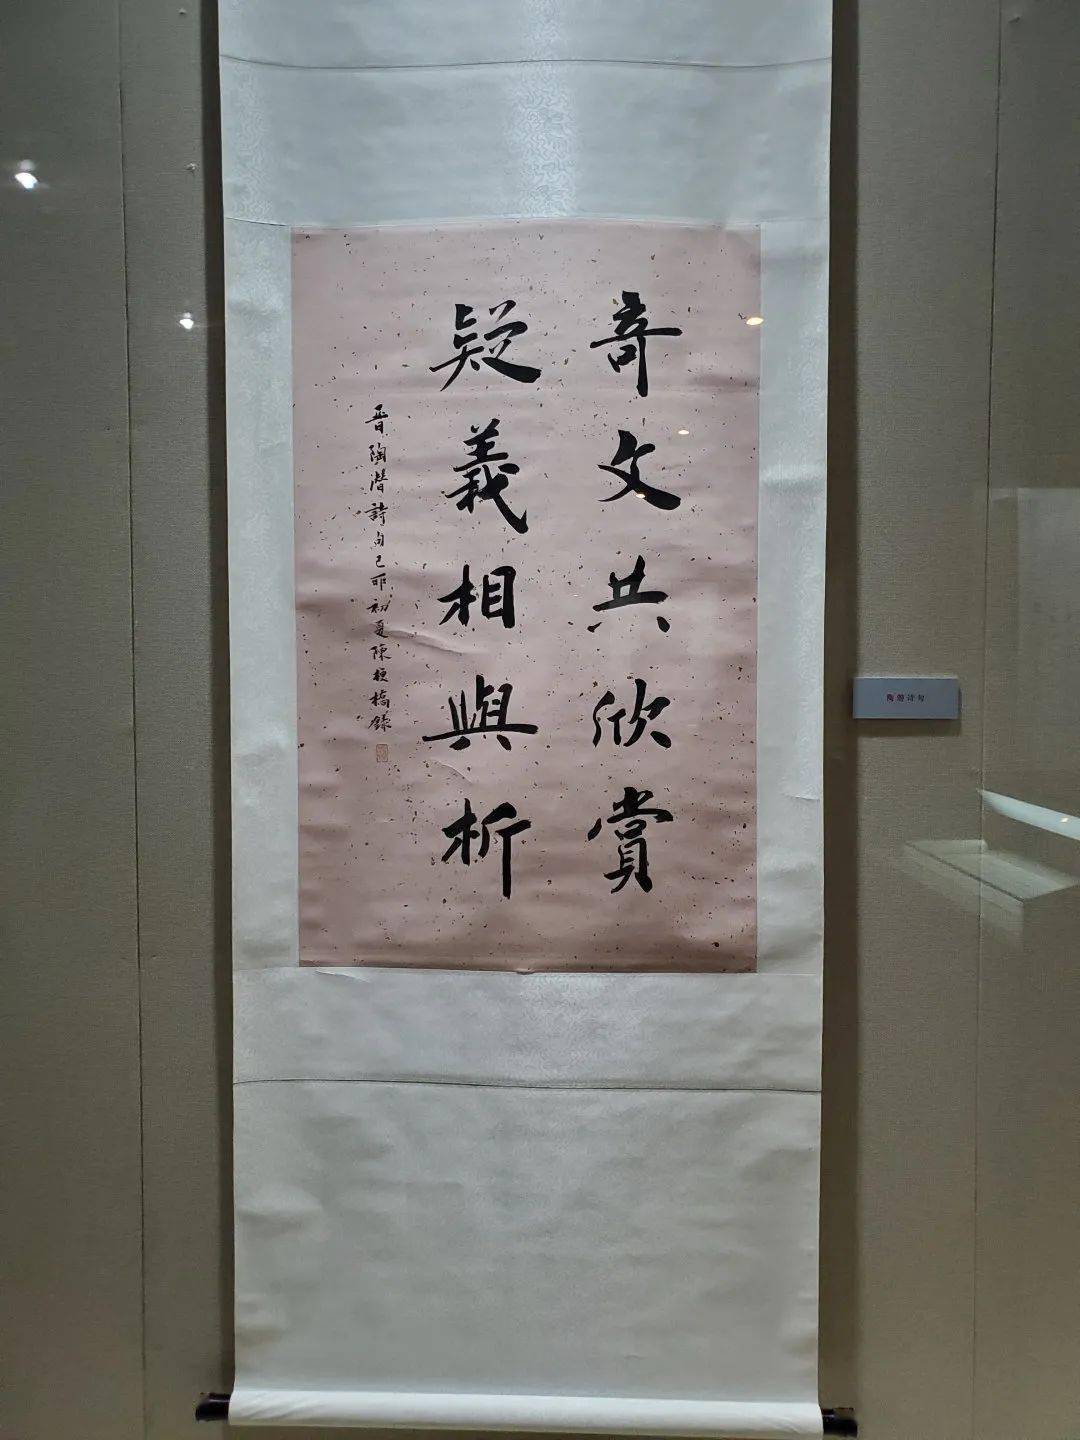 奇文共欣賞
疑義相與析
晉陶潛詩句己卯初夏陳梗橋錄
陶潜诗句